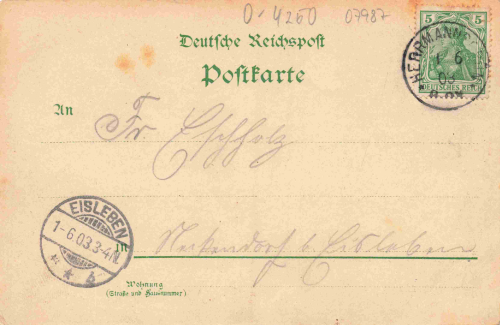 0-4260 07987
Deutsche Reichspost
Postkarte
5 5
DEUTSCHES REICH
HERRMANNS
1 6
03
An
Fr Eschholz
EISLEBEN
1-6 03 3-4N.
* b
In Neckendorf b. Eisleben
Wohnung
(Straße und Hausnummer)